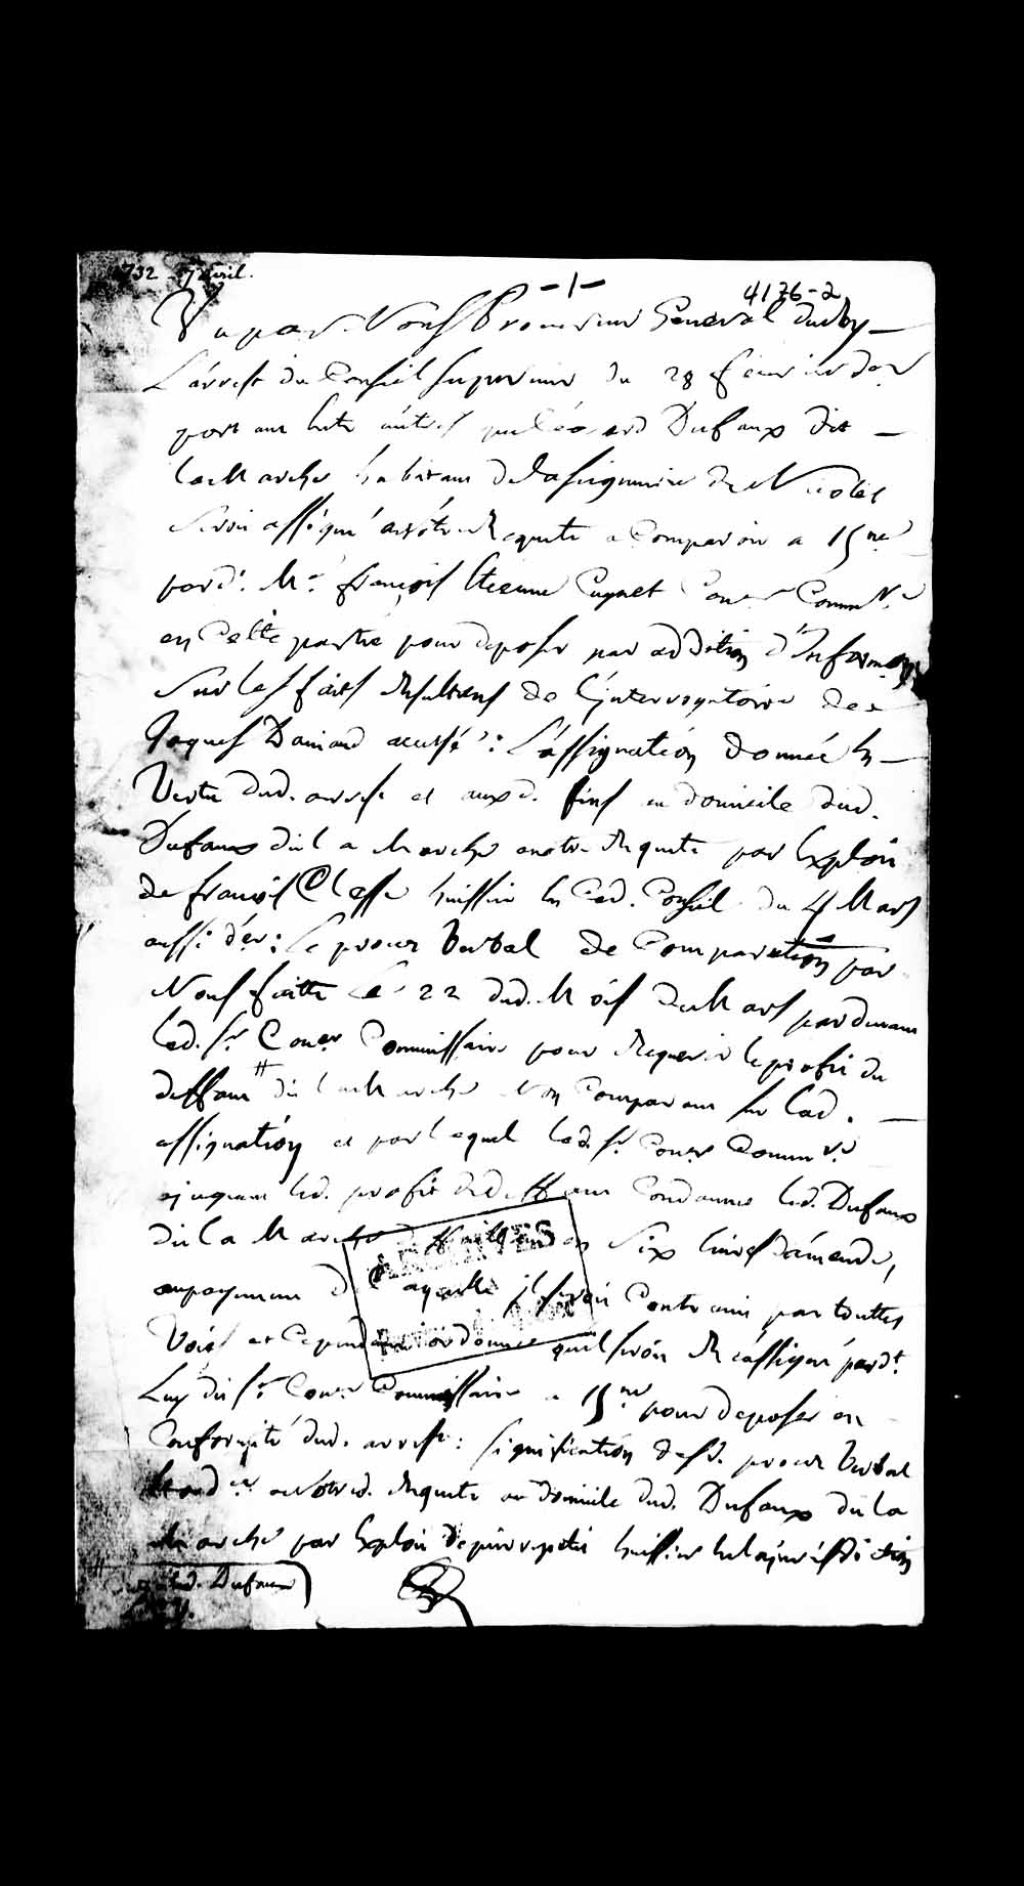 1732 - 7 avril.
-1-
4176-2
Vu par Nous Procureur General du Roy
L'arrest du Conseil Superieur du 28 feuvrier der
portant entre autres que Dufaux dit
la Marche habitant de la seigneurie de Nicolet
seroit assigné a nostre Requete a Comparoir a
pard.t M.e françois Etienne Cugnet Con.er Comm.re
en Cette partie pour deposer par addition d'Informaon
Sur les faits Resultans de L'jnterrogatoire de
Jaques Daniaud accusé : L'assignation donnée En
Vertu dud. arrest et auxd. fins en domicile dud.
Dufaux dit la Marche a nostre Requete par Exploit
de françois Clesse huissier En Ced. Conseil du 4 Mars
aussi der : Le procez Verbal de Comparution par
Nous faitte Le 22 dud. Mois de Mars pardevant
Led. S.r Con.er Commissaire pour Requerir le profit du
deffaut # dit la Marche Non Comparant sur Lad.
assignation et par lequel Led. S.r Con.er Comm.re
ajugeant led. profit dud. deffaut Condamne led. Dufaux
dit La Marche deffaillant en Six livres d'amende,
au payement de Laquelle jl seroit Contraint par touttes
Voies et Cependant ordonne quil seroit Réassigné pard.t
Luy dit S.r Con.er Commissaire a pour deposer en
Conformité dud. arrest : signification desd. procez Verbal
a Nostred. Requete au domicile dud. Dufaux dit la
Marche par Exploit de huissier En la jurisdiction
# led. Dufaux